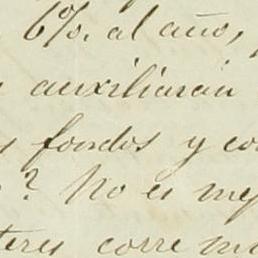 6%. al año,
auxiliarán
fondos y co
? No es mej
teres corre m